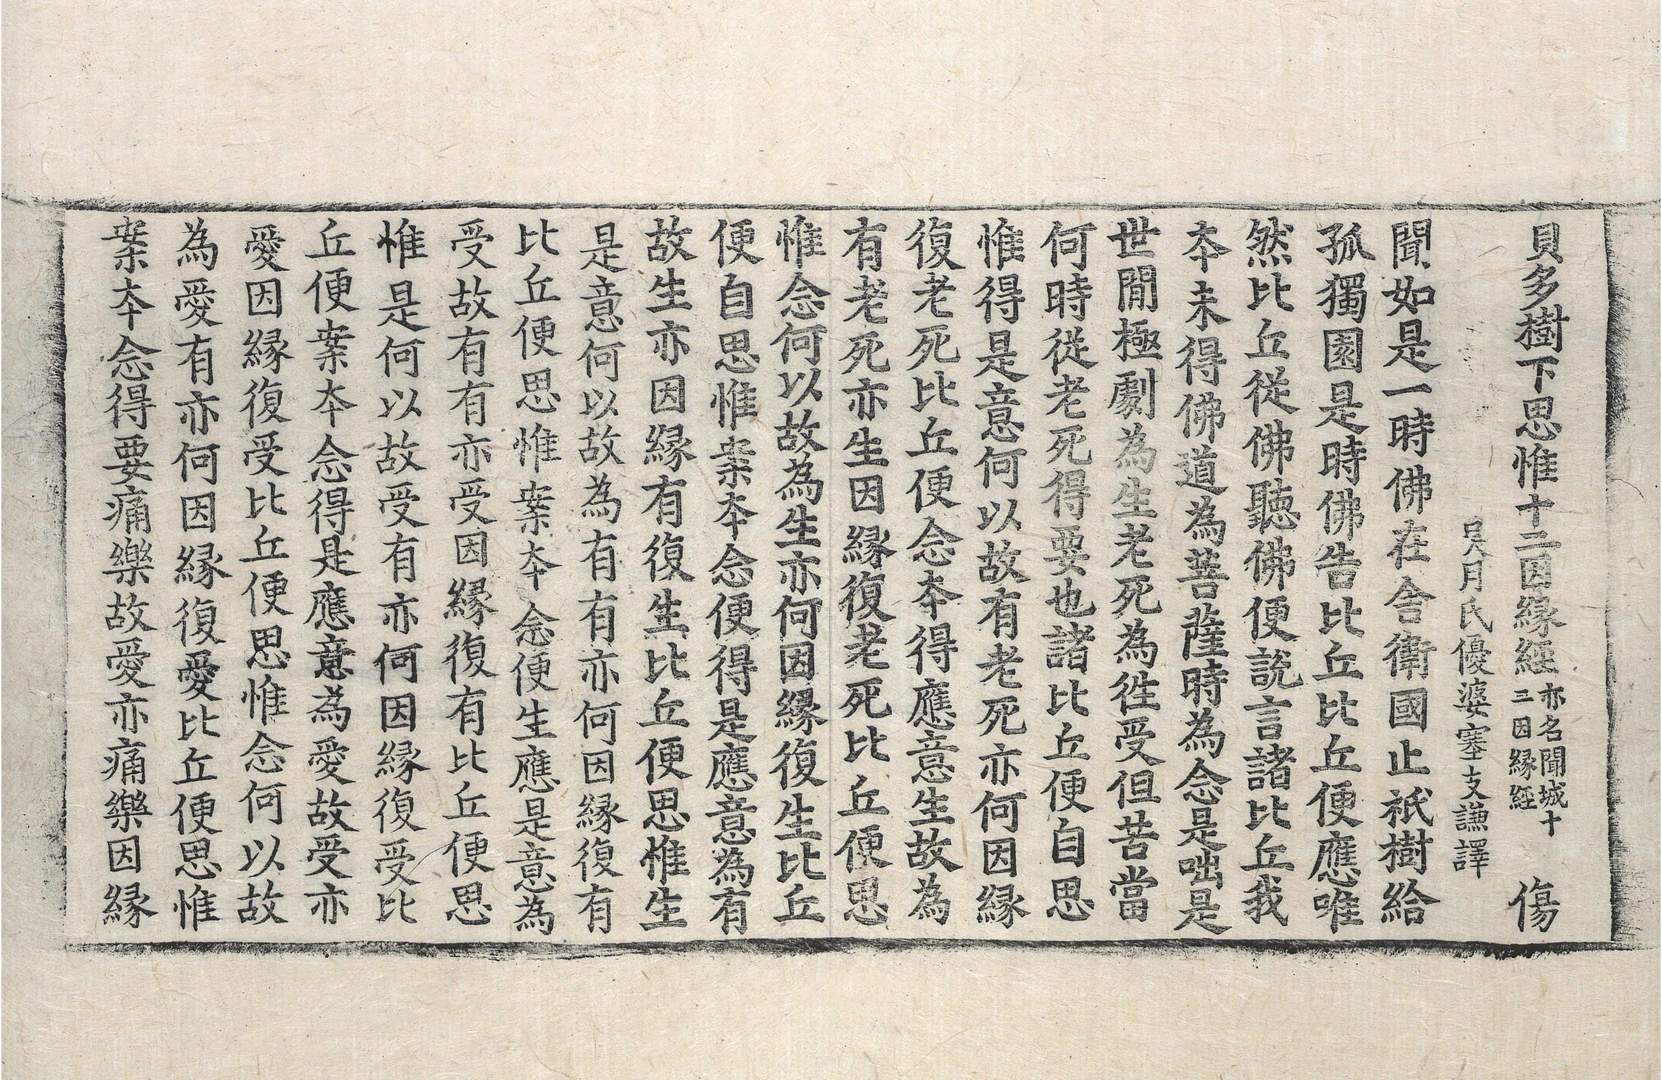 貝多樹下思惟十二因緣經 亦名聞城十二因緣經 傷
吳月氏優婆塞支謙譯
聞如是一時佛在舍衛國止祇樹給
孤獨園是時佛告比丘比丘便應唯
然比丘從佛聽佛便說言諸比丘我
本未得佛道為菩薩時為念是咄是
世間極劇為生老死為徃受但苦當
何時從老死得要也諸比丘便自思
惟得是意何以故有老死亦何因緣
復老死比丘便念本得應意生故為
有老死亦生因緣復老死比丘便思
惟念何以故為生亦何因緣復生比丘
便自思惟案本念便得是應意為有
故生亦因緣有復生比丘便思惟生
是意何以故為有有亦何因緣復有
比丘便思惟案本念便生應是意為
受故有有亦受因緣復有比丘便思
惟是何以故受有亦何因緣復受比
丘便案本念得是應意為愛故受亦
愛因緣復受比丘便思惟念何以故
為愛有亦何因緣復愛比丘便思惟
案本念得要痛樂故愛亦痛樂因緣